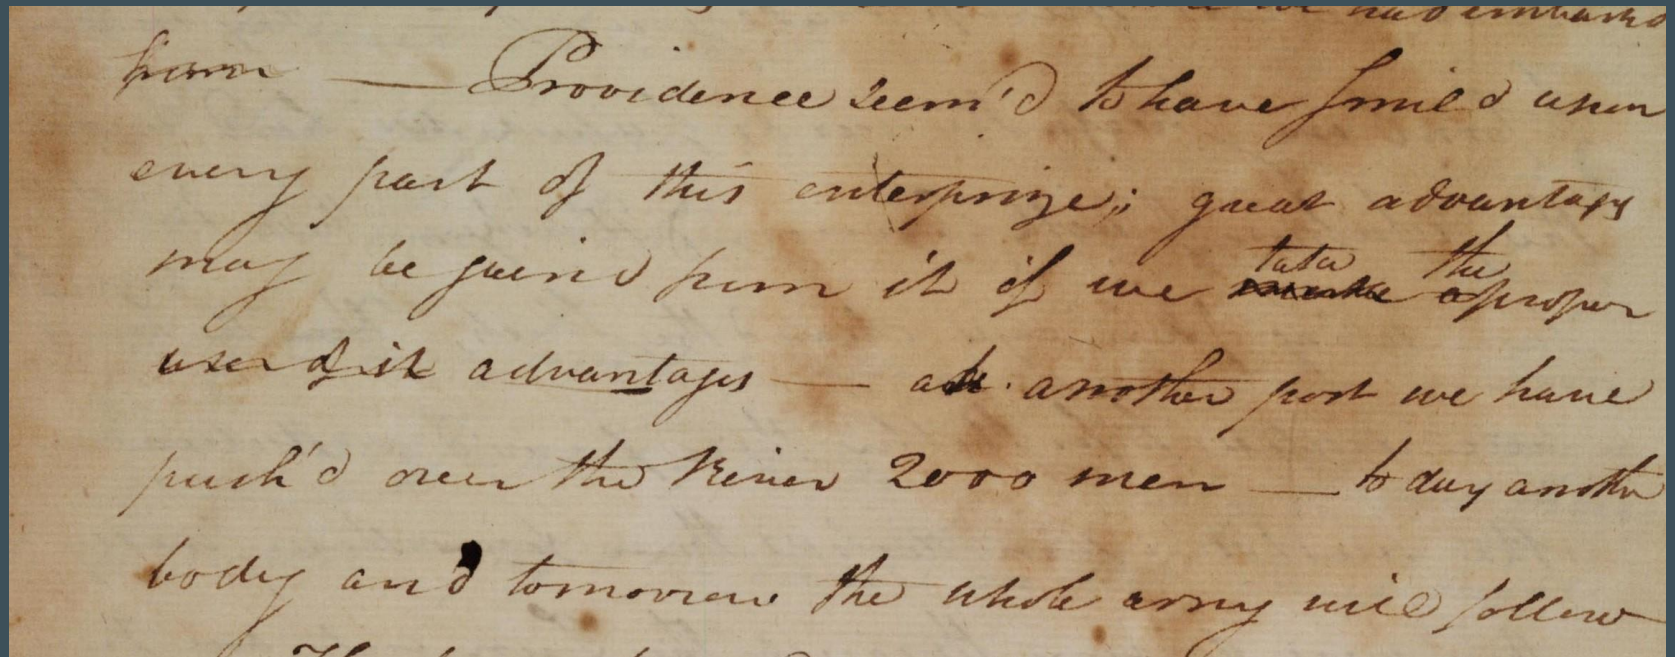 we had embark'd
from — Providence seem'd to have smil'd upon
every part of this enterprize; great advantages
may be gain'd from it if we take the proper
use of it advantages — at another post we have
push'd over the River 2000 men — to day another
body and tomorrow the whole army will follow